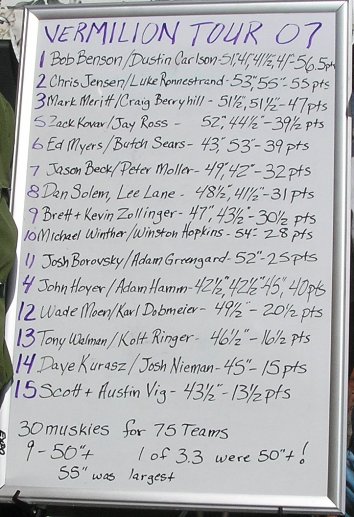 VERMILION TOUR 07
1 Bob Benson/Dustin Carlson-51,41,41½,41"-56.5pts
2 Chris Jensen/Luke Ronnestrand-53",55"-55 pts
3 Mark Meritt/Craig Berryhill - 51½,51½"-47pts
5 Zack Kovar/Jay Ross - 52",44½"-39½ pts
6 Ed Myers/Butch Sears - 43",53"-39 pts
7 Jason Beck/Peter Moller-49",42"-32 pts
8 Dan Solem, Lee Lane - 48½",41½"-31 pts
9 Brett + Kevin Zollinger-47",43½"-30½ pts
10 Michael Winther/Winston Hopkins-54"-28 pts
11 Josh Borovsky/Adam Greengard-52"-25 pts
4 John Hoyer/Adam Hamm-42½",42½"45", 40pts
12 Wade Moen/Karl Dobmeier - 49½" - 20½ pts
13 Tony Welman/Kolt Ringer - 46½"-16½ pts
14 Dave Kurasz/Josh Nieman-45"-15 pts
15 Scott + Austin Vig - 43½"-13½ pts
30 muskies for 75 Teams
9 - 50"+ 1 of 3.3 were 50"+!
55" was largest
EXPO